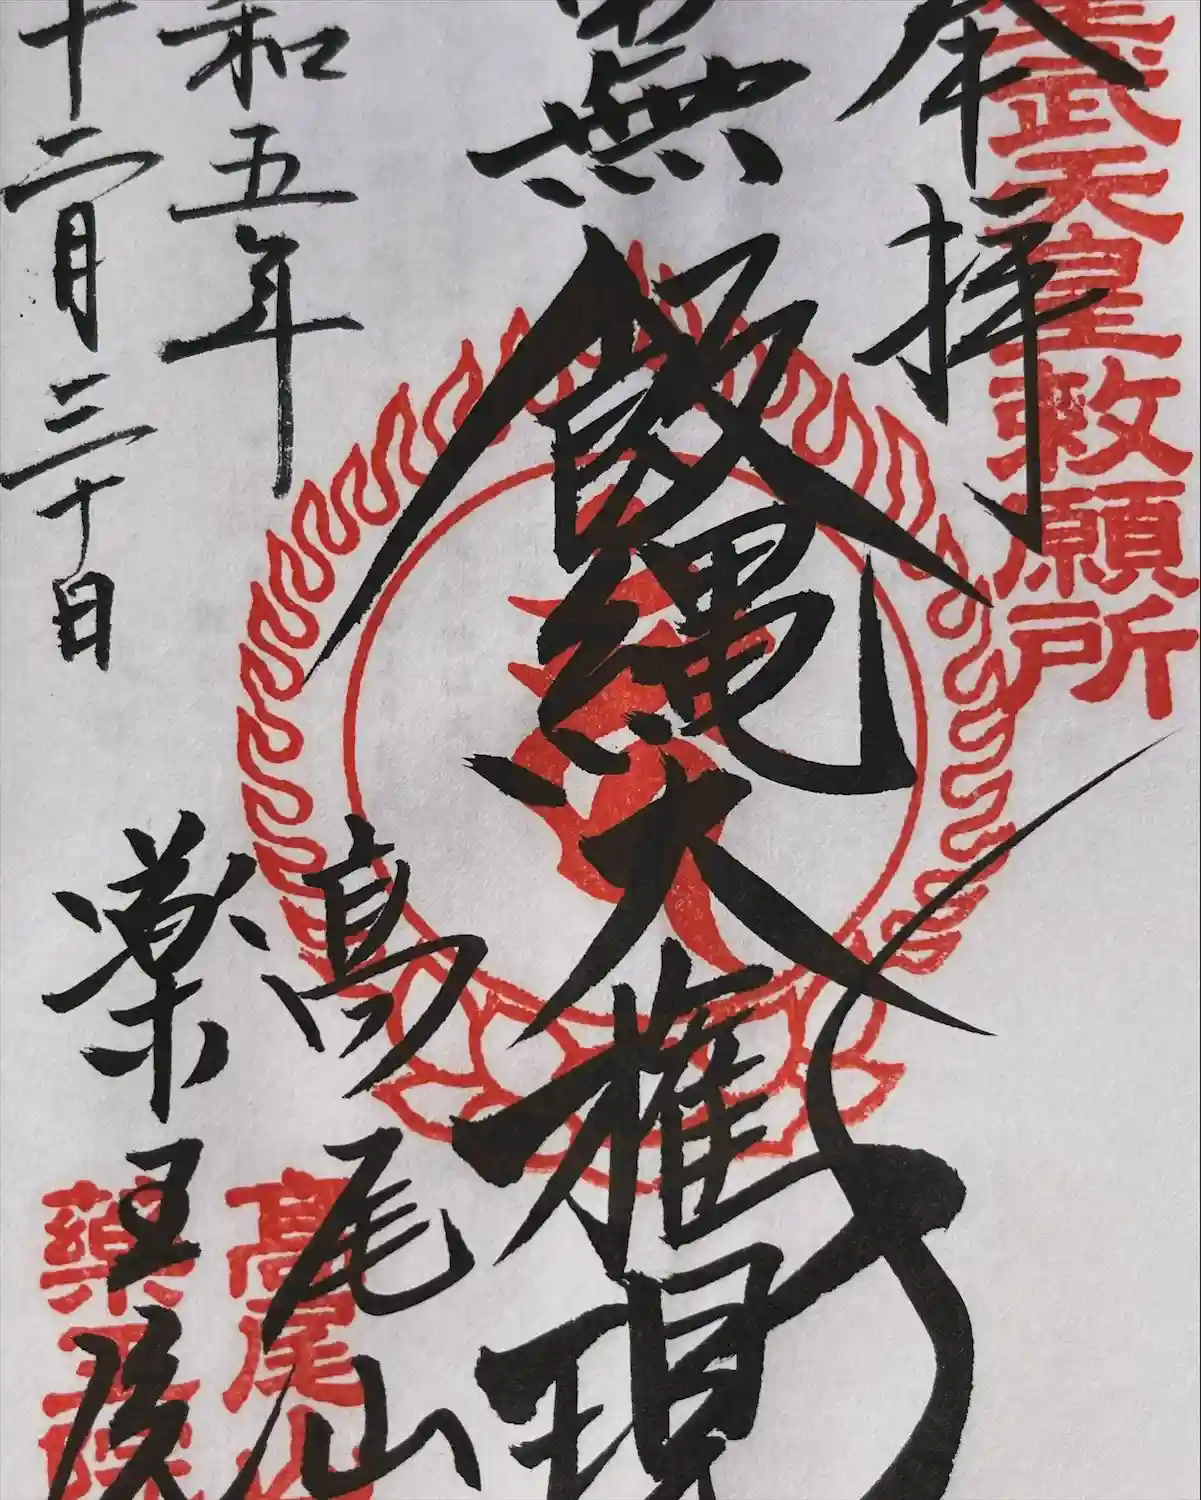 聖武天皇敕願所
奉拝
南無飯縄大権現
令和五年
十二月三十日
高尾山
薬王院
高尾山
藥王院